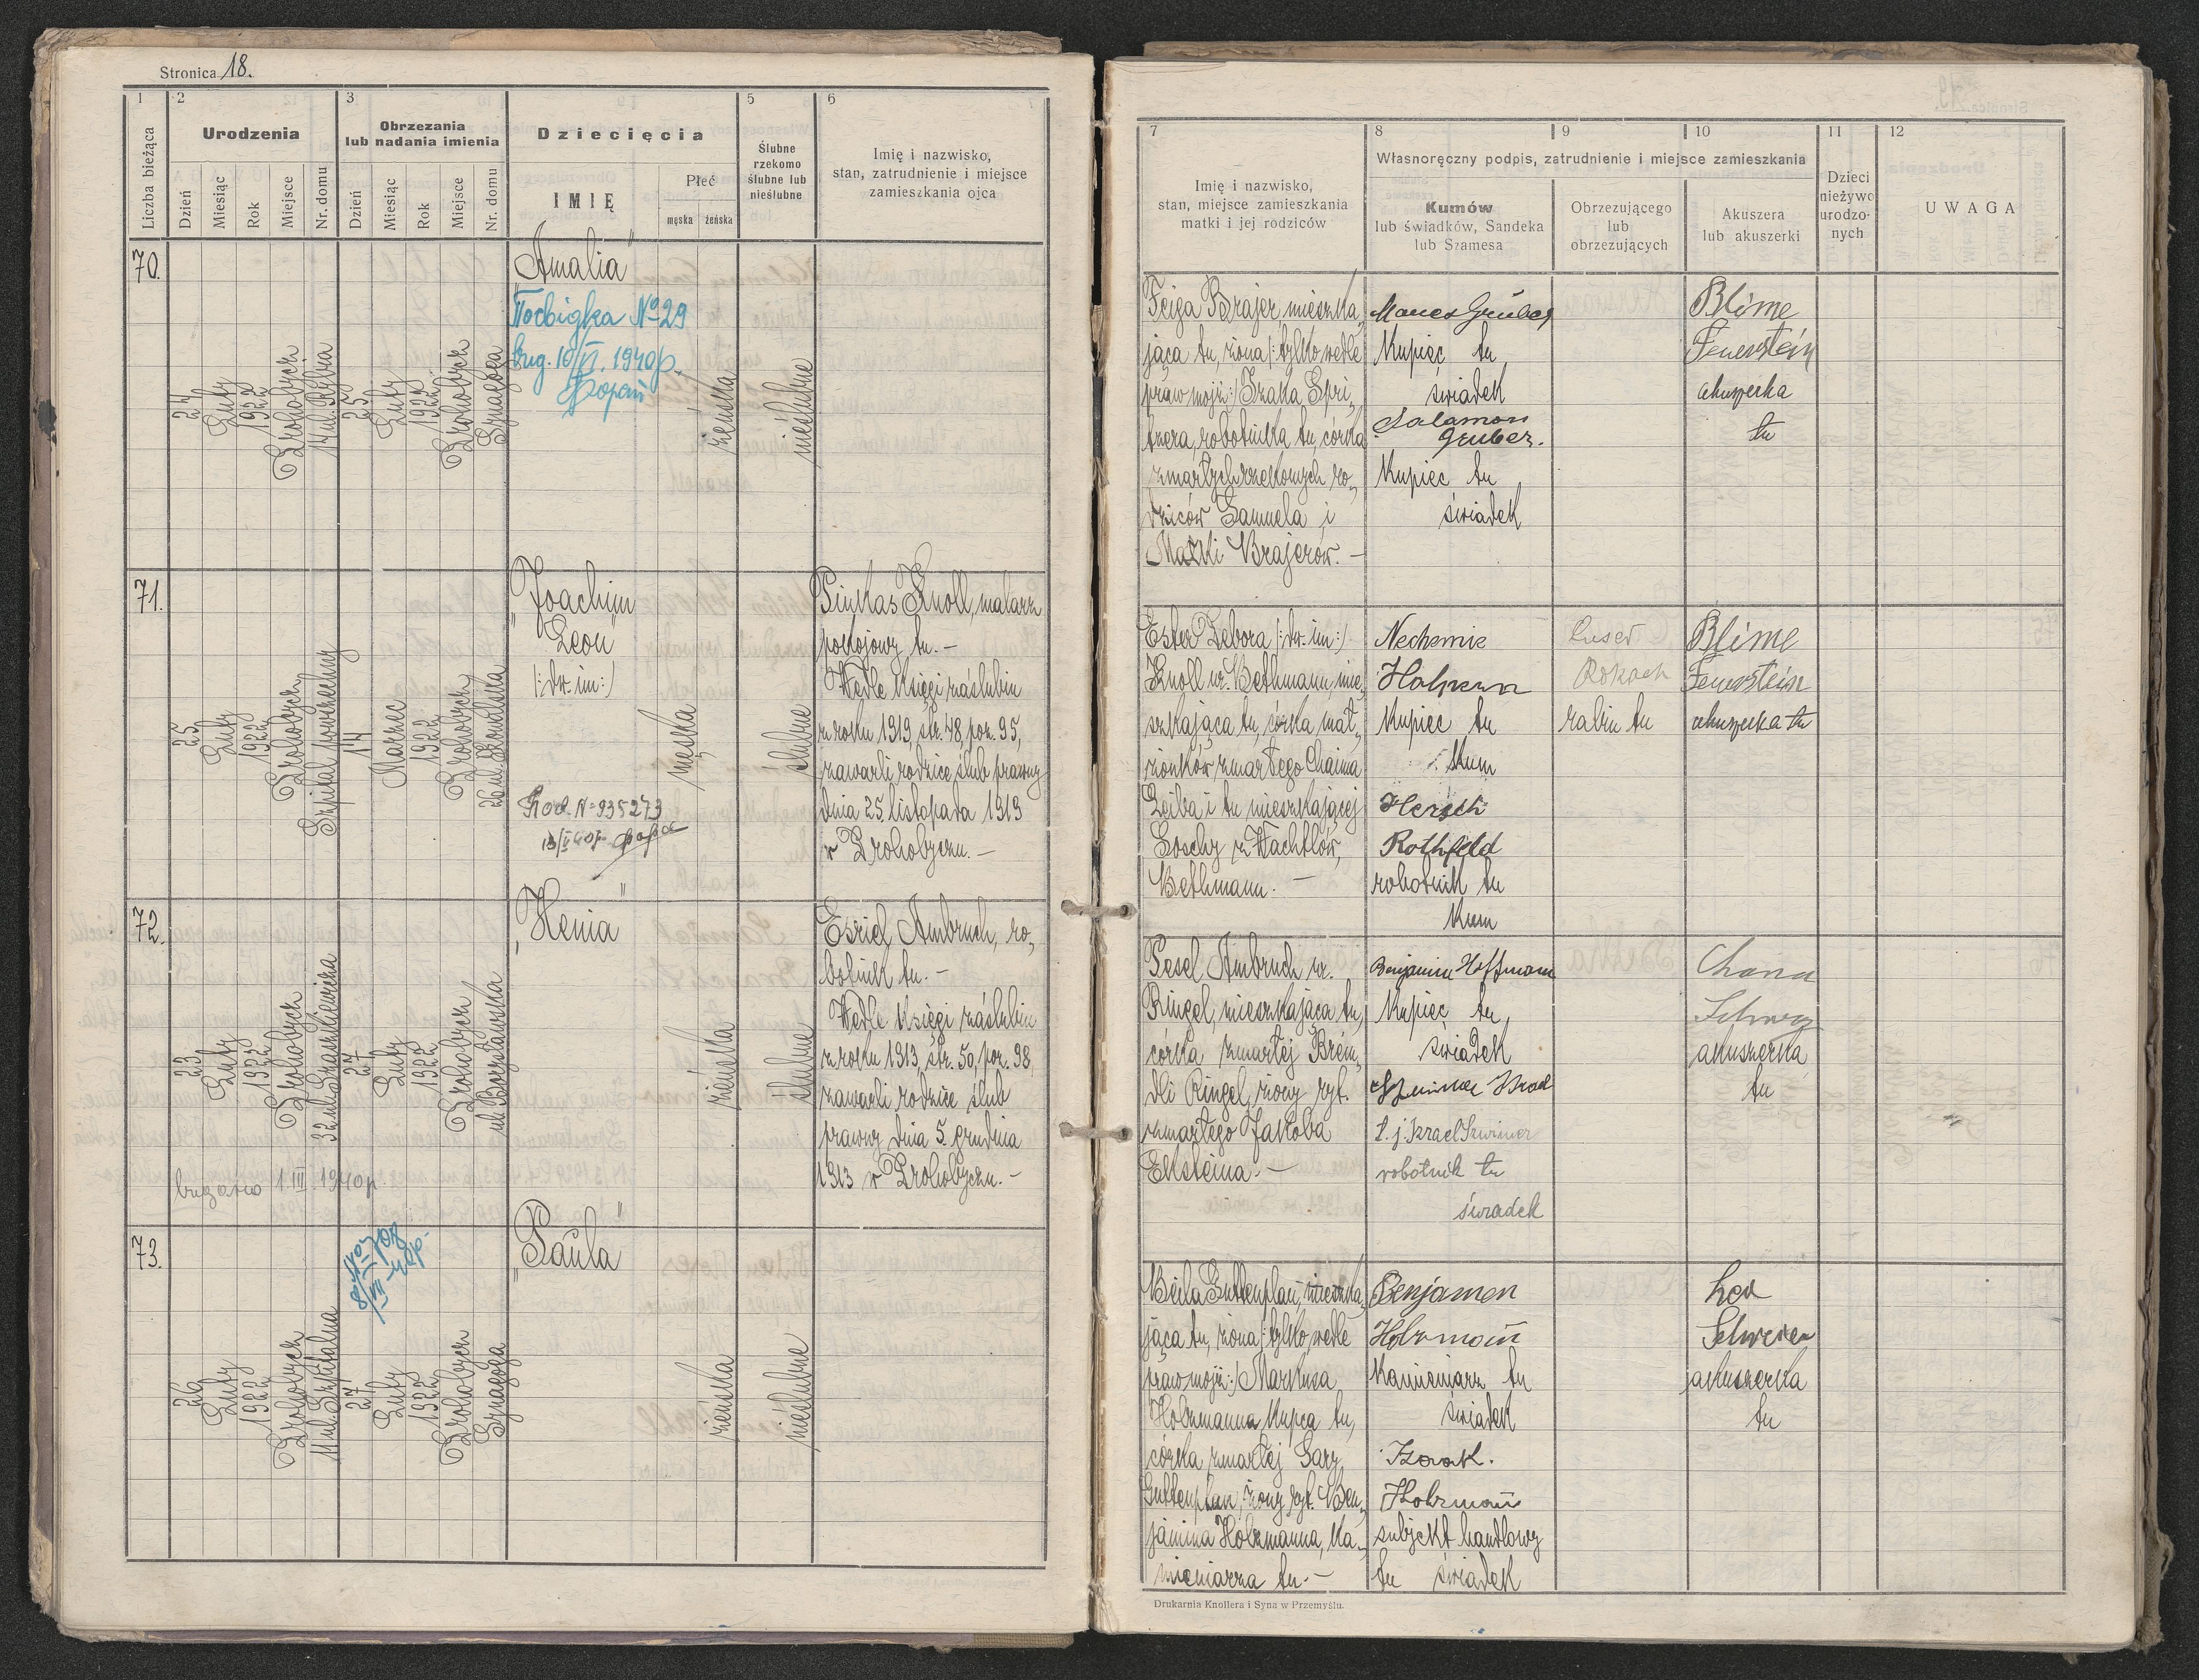 Stronica 18.
1
2
3
5
6
Liczba bieżąca
Urodzenia
Dzień
Miesiąc
Rok
Miejsce
Nr. domu
Obrzezania
lub nadania imienia
Dzień
Miesiąc
Rok
Miejsce
Nr. domu
Dziecięcia
IMIĘ
Płeć
męska
żeńska
Ślubne
rzekomo
ślubne lub
nieślubne
Imię i nazwisko,
stan, zatrudnienie i miejsce
zamieszkania ojca
70.
24
Luty
1922
Drohobycz
25
Luty
1922
Drohobycz
Synagoga
„Amalia"
No 29
10/VI. 1940 р.
żeńska
nieślubne
71.
25
Luty
1922
Drohobycz
Szpital powszechny
14
Marzec
1922
Drohobycz
„Joachim
Leon"
(: dw. im :)
No 935273
męska
ślubne
Pinkas Knoll, malarz
pokojowy tu. —
Wedle Księgi zaślubin
z roku 1919, str. 48, poz. 95,
zawarli rodzice ślub prawny
dnia 25 listopada 1919
w Drohobyczu. —
72.
23
Luty
1922
Drohobycz
27
Luty
1922
Drohobycz
ul. Borysławska
„Henia"
żeńska
ślubne
Esriel Ambruch, ro-
botnik tu. —
Wedle Księgi zaślubin
z roku 1913, str. 50, poz. 98
zawarli rodzice ślub
prawny dnia 5. grudnia
1913 w Drohobyczu. —
1 III. 1940 р.
73.
26
Luty
1922
Drohobycz
11 ul. Szpitalna
27
Luty
1922
Drohobycz
Synagoga
„Paula"
żeńska
nieślubne
7
8
9
10
11
12
Imię i nazwisko,
stan, miejsce zamieszkania
matki i jej rodziców
Własnoręczny podpis, zatrudnienie i miejsce zamieszkania
Kumów
lub świadków, Sandeka
lub Szamesa
Obrzezującego
lub
obrzezujących
Akuszera
lub akuszerki
Dzieci
nieżywo
urodzo-
nych
UWAGA
Feiga Brajer, mieszka-
jąca tu, żona (: tylko wedle
praw mojż :) Izaka Spri-
tzera, robotnika tu, córka
zmarłych rzekomych ro-
dziców Samuela i
Brajerów. —
Manes Gruber
Kupiec tu
świadek
Salamon
Gruber.
Kupiec tu
świadek
Blime
Feuerstein
akuszerka
tu
Ester Debora (: dw. im :)
Knoll ur. Bethmann, mie-
szkająca tu, córka mał-
żonków zmarłego Chaima
Leiba i tu mieszkającej
Soschy z Wachtlów,
Bethmann. —
Nechemie
Halpern
Kupiec tu
Kum
Hersch
Rothfeld
robotnik tu
Kum
Rokach
rabin tu
Blime
Feuerstein
akuszerka tu
Pesel Ambruch ur.
Ringel, mieszkająca tu,
córka zmarłej Brein-
dli Ringel, żony ryt.
zmarłego Jakóba
Eksteina. —
Benjamin Hoffmann
Kupiec tu,
świadek
t. j. Izrael Szwimer
robotnik tu
świadek
Chana
akuszerka
tu
Beila Guttenplan, mieszka-
jąca tu, żona (: tylko wedle
praw mojż :) Markusa
Holzmanna Kupca tu,
córka zmarłej Sary
Guttenplan, żony ryt. Ben-
jamina Holzmanna, ka-
mieniarza tu. —
Benjamen
Holzmann
Kamieniarz tu
świadek
Izaak.
Holzmann
subjekt handlowy
tu świadek
Lea
akuszerka
tu
Drukarnia Knollera i Syna w Przemyślu.